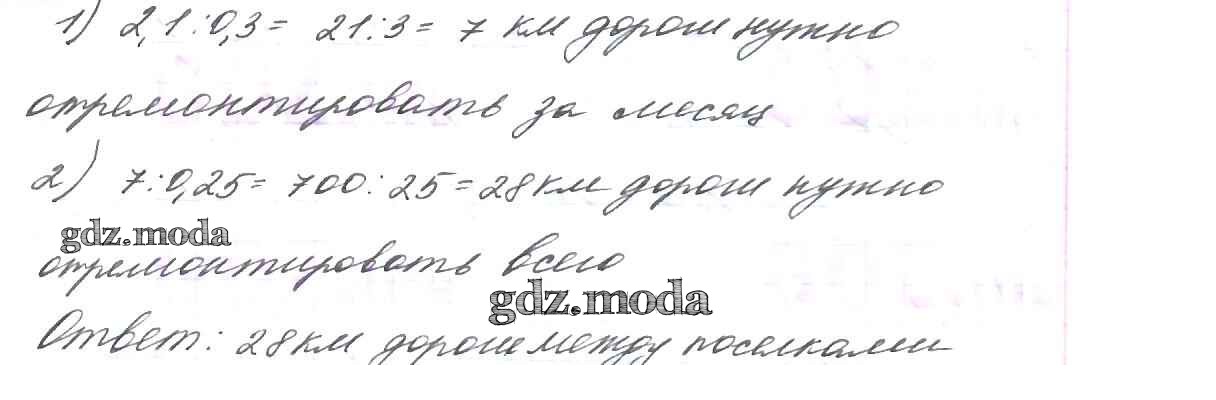 1) 2,1:0,3 = 21:3 = 7 км дороги нужно
отремонтировать за месяц
2) 7:0,25 = 700:25 = 28 км дороги нужно
gdz.moda
отремонтировать всего
gdz.moda
Ответ: 28 км дороги между поселками